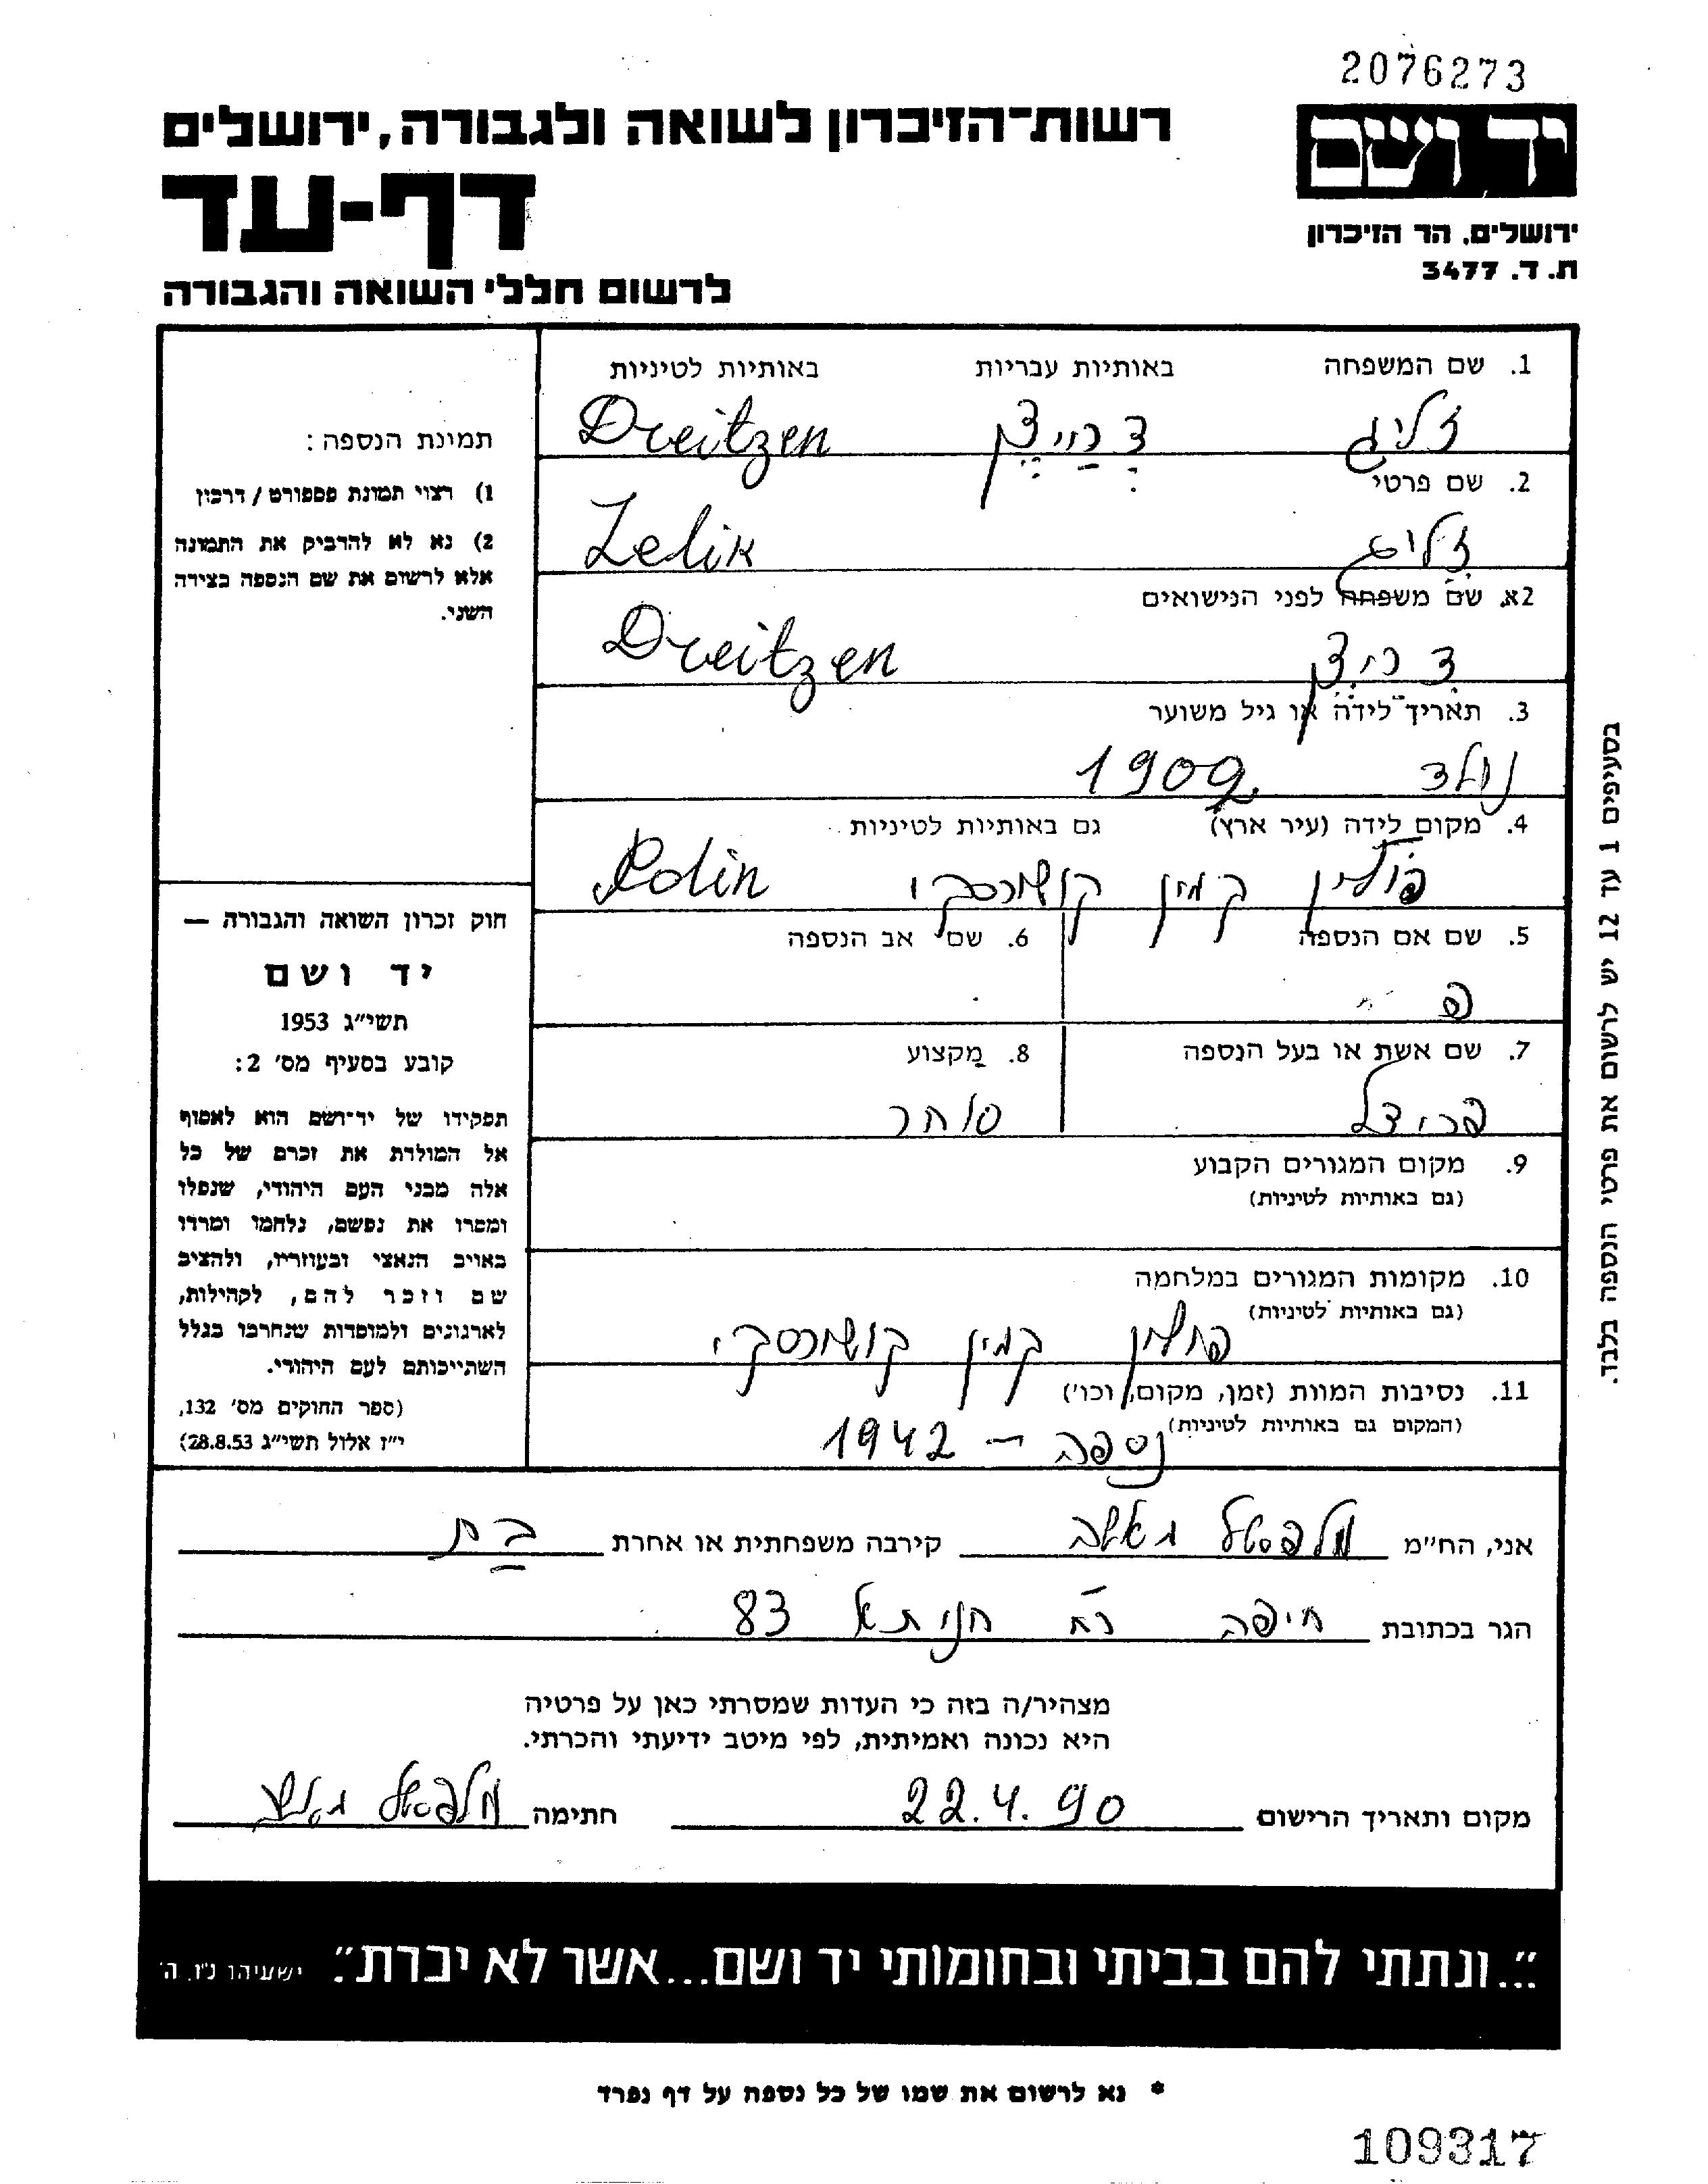 2076273
רשות־הזיכרון לשואה ולגבורה, ירושלים
יד ושם
דף-עד
ירושלים, הר הזיכרון
ת. ד. 3477
לרשום חללי השואה והגבורה
1. שם המשפחה באותיות עבריות באותיות לטיניות
זליג דרייצן Dreitzen
2. שם פרטי
זליג Zelik
2א. שם משפחה לפני הנישואים
דריצן Dreitzen
3. תאריך לידה או גיל משוער
נולד 1902
4. מקום לידה (עיר ארץ) גם באותיות לטיניות
פולין קמין קושורסקי Polin
5. שם אם הנספה 6. שם אב הנספה
7. שם אשת או בעל הנספה 8. מקצוע
פרידל סוחר
9. מקום המגורים הקבוע
(גם באותיות לטיניות)
10. מקומות המגורים במלחמה
(גם באותיות לטיניות)
פולין קמין קושורסקי
11. נסיבות המוות (זמן, מקום, וכו')
(המקום גם באותיות לטיניות)
נספה - 1942
תמונת הנספה:
1) רצוי תמונת פספורט / דרכון
2) נא לא להדביק את התמונה
אלא לרשום את שם הנספה בצידה
השני.
חוק זכרון השואה והגבורה —
יד ושם
תשי״ג 1953
קובע בסעיף מס׳ 2:
תפקידו של יד־ושם הוא לאסוף
אל המולדת את זכרם של כל
אלה מבני העם היהודי, שנפלו
ומסרו את נפשם, נלחמו ומרדו
באויב הנאצי ובעוזריו, ולהציב
שם וזכר להם, לקהילות,
לארגונים ולמוסדות שנחרבו בגלל
השתייכותם לעם היהודי.
(ספר החוקים מס׳ 132,
י״ז אלול תשי״ג 28.8.53)
בסעיפים 1 עד 12 יש לרשום את פרטי הנספה בלבד.
אני, הח״מ קירבה משפחתית או אחרת בת
הגר בכתובת חיפה רח חניתא 83
מצהיר/ה בזה כי העדות שמסרתי כאן על פרטיה
היא נכונה ואמיתית, לפי מיטב ידיעתי והכרתי.
מקום ותאריך הרישום 22.4.90 חתימה
״...ונתתי להם בביתי ובחומותי יד ושם...אשר לא יכרת״. ישעיהו נ״ו, ה׳
* נא לרשום את שמו של כל נספה על דף נפרד
109317